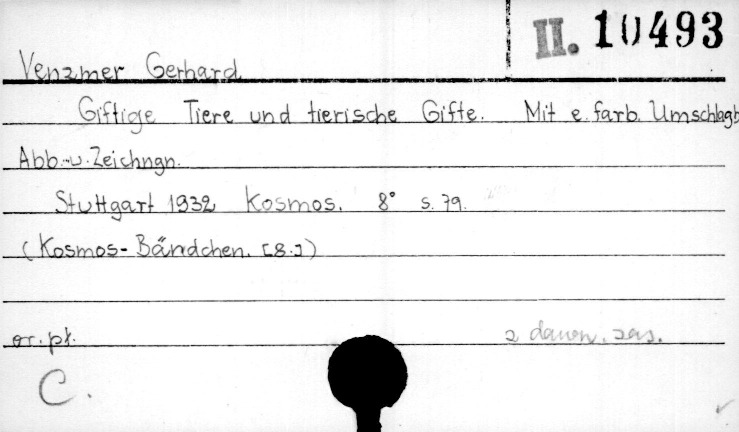 II. 10493
Venzmer Gerhard
Giftige Tiere und tierische Gifte. Mit e. farb. Umschlagb
Abb. u. Zeichngn.
Stuttgart 1932 Kosmos. 8° s. 79.
(Kosmos-Bändchen. [8.])
or. pł.
z dawn. zas.
C.